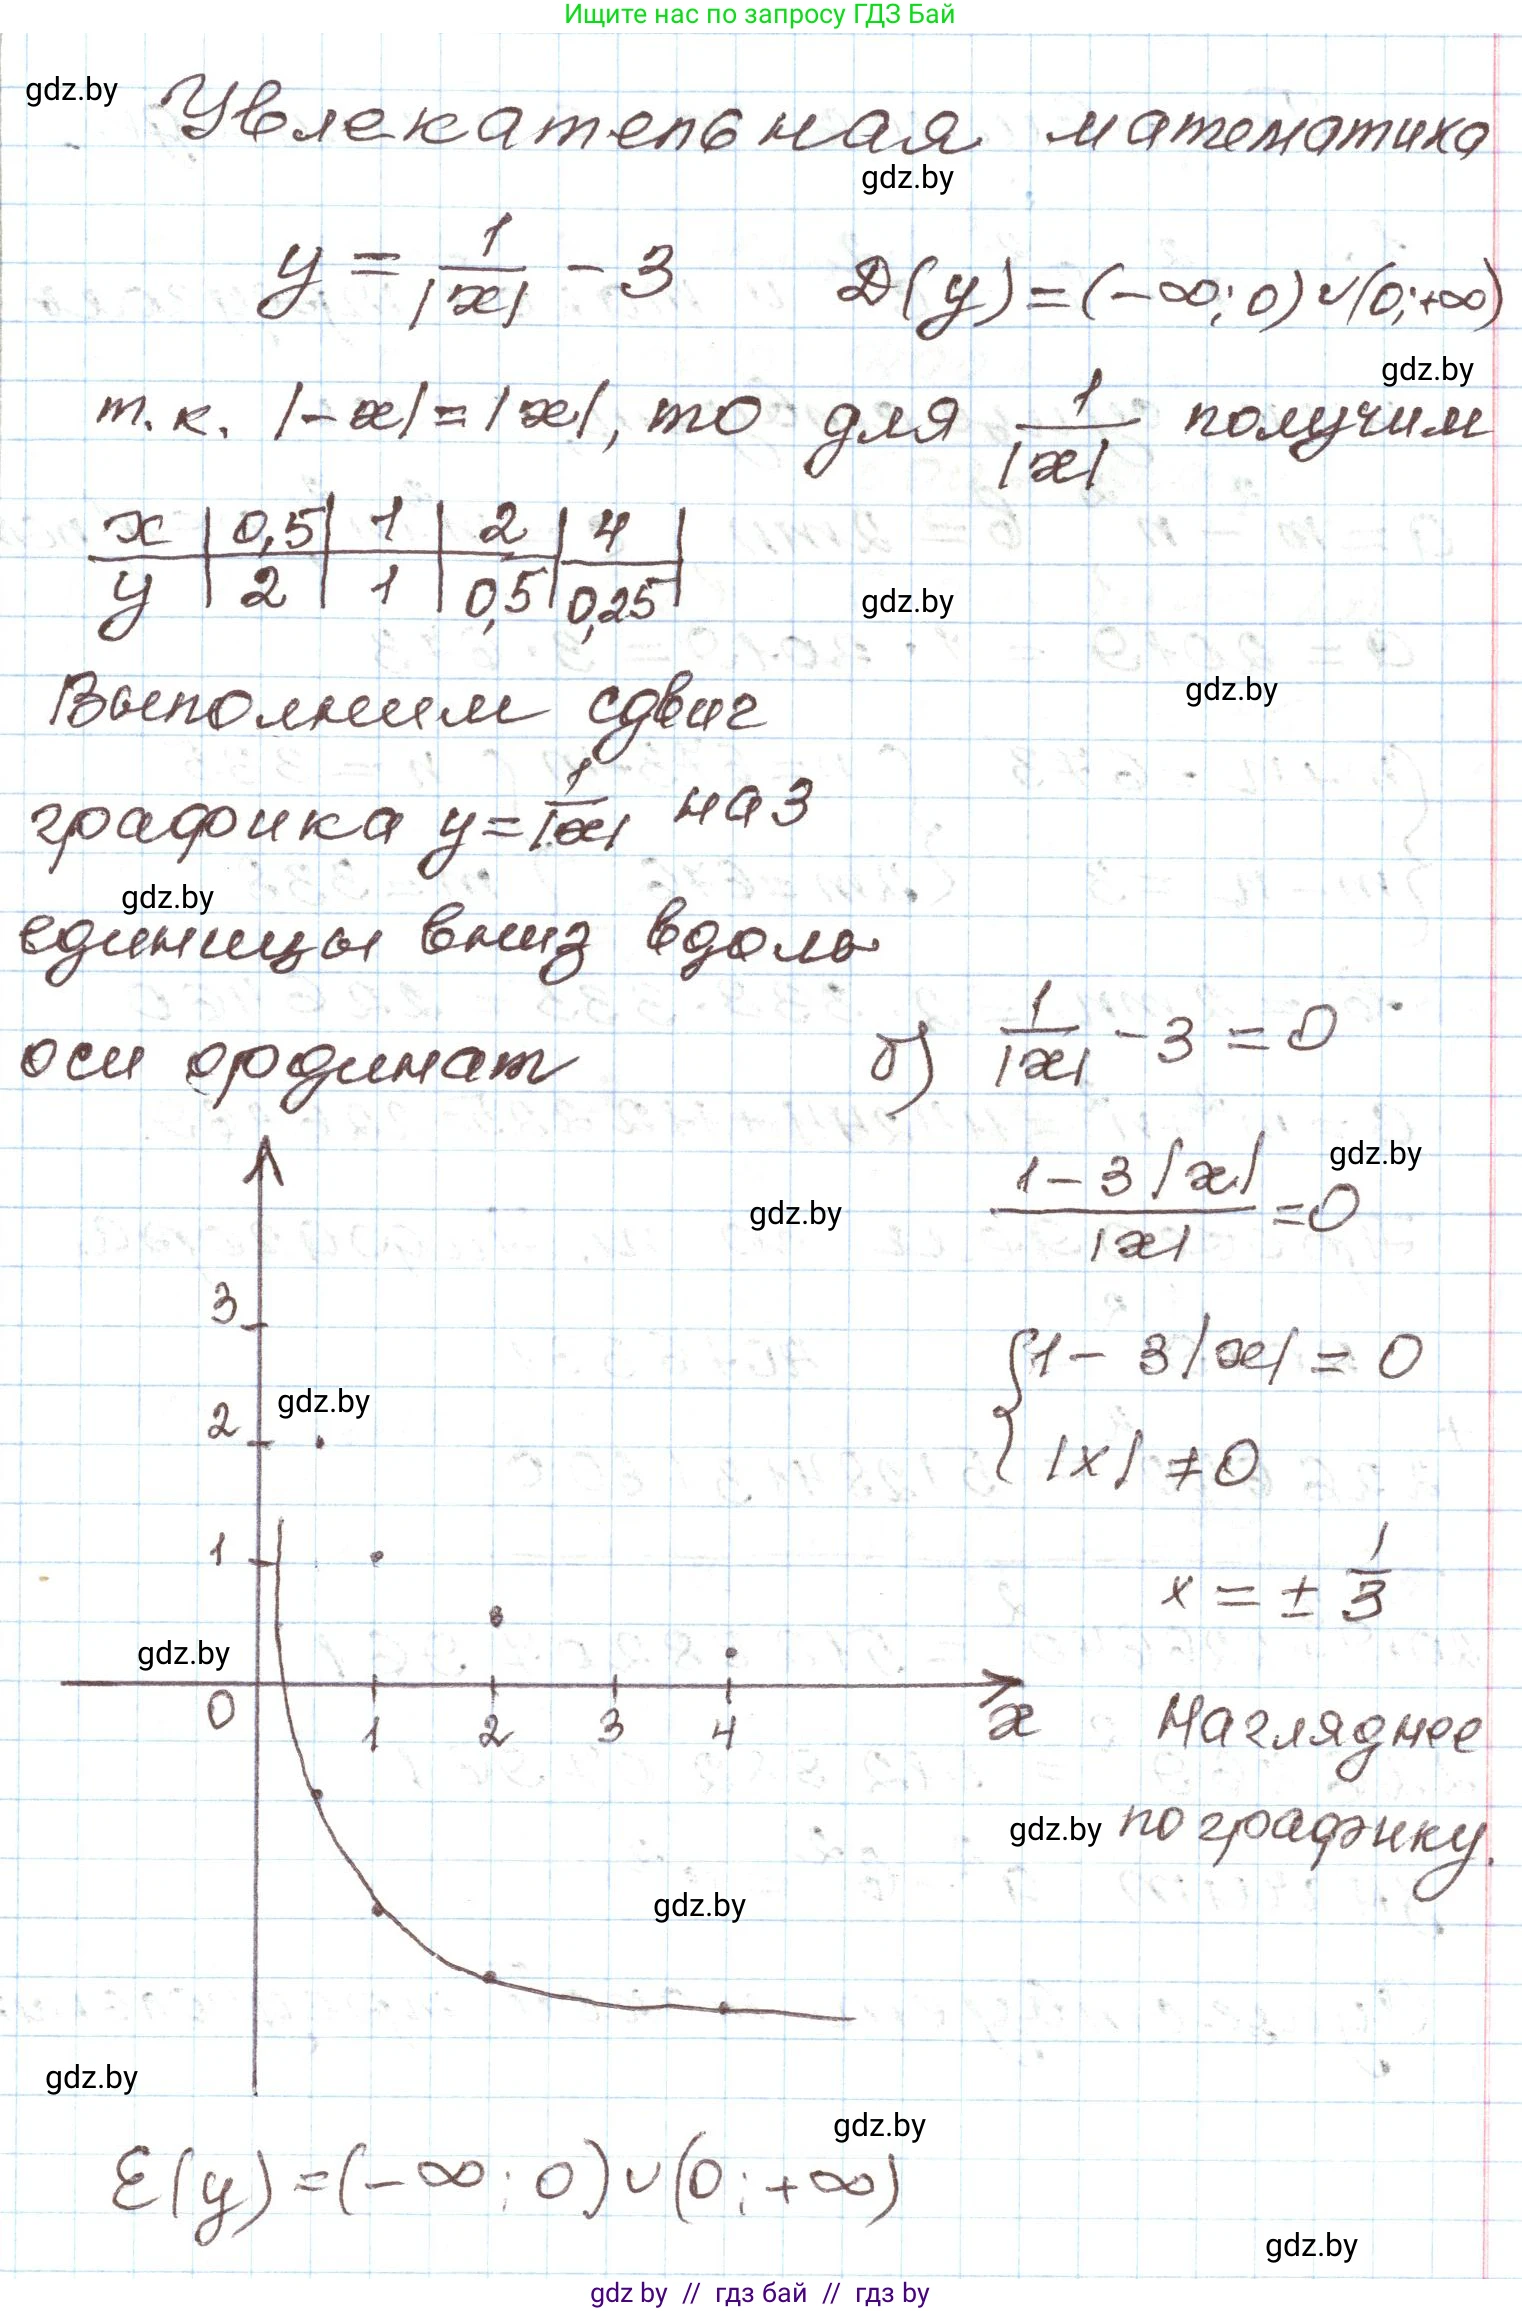 Ищите нас по запросу ГДЗ Бай
gdz.by
Увлекательная математика
gdz.by
y = 1/|x| - 3 D(y) = (-∞; 0) ∪ (0; +∞)
gdz.by
т.к. |-x| = |x|, то для 1/|x| получим
x | 0,5 | 1 | 2 | 4
y | 2 | 1 | 0,5 | 0,25
gdz.by
gdz.by
Выполним сдвиг
графика y = 1/|x| на 3
gdz.by
единицы вниз вдоль
оси ординат
б) 1/|x| - 3 = 0
gdz.by
gdz.by
(1 - 3|x|)/|x| = 0
3
{ 1 - 3|x| = 0
gdz.by
2
|x| ≠ 0
1
x = ± 1/3
gdz.by
0 1 2 3 4 x
Нагляднее
gdz.by
по графику.
gdz.by
gdz.by
gdz.by
E(y) = (-∞; 0) ∪ (0; +∞)
gdz.by
gdz by // гдз бай // гдз by